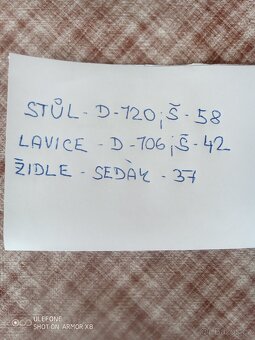 STŮL - D - 120 ; Š - 58
LAVICE - D - 106 ; Š - 42
ŽIDLE - SEDÁK - 37
ULEFONE
SHOT ON ARMOR X8